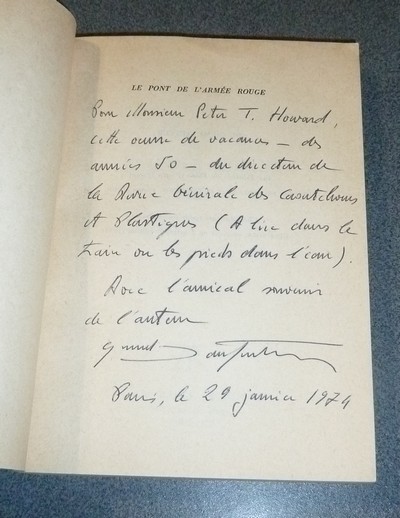 LE PONT DE L'ARMÉE ROUGE
Pour Monsieur Peter T. Howard,
cette œuvre de vacances – des
années 50 – du directeur de
la Revue Générale des Caoutchoucs
et Plastiques (A lire dans le
train ou les pieds dans l'eau).
Avec l'amical souvenir
de l'auteur
Paris, le 29 janvier 1974